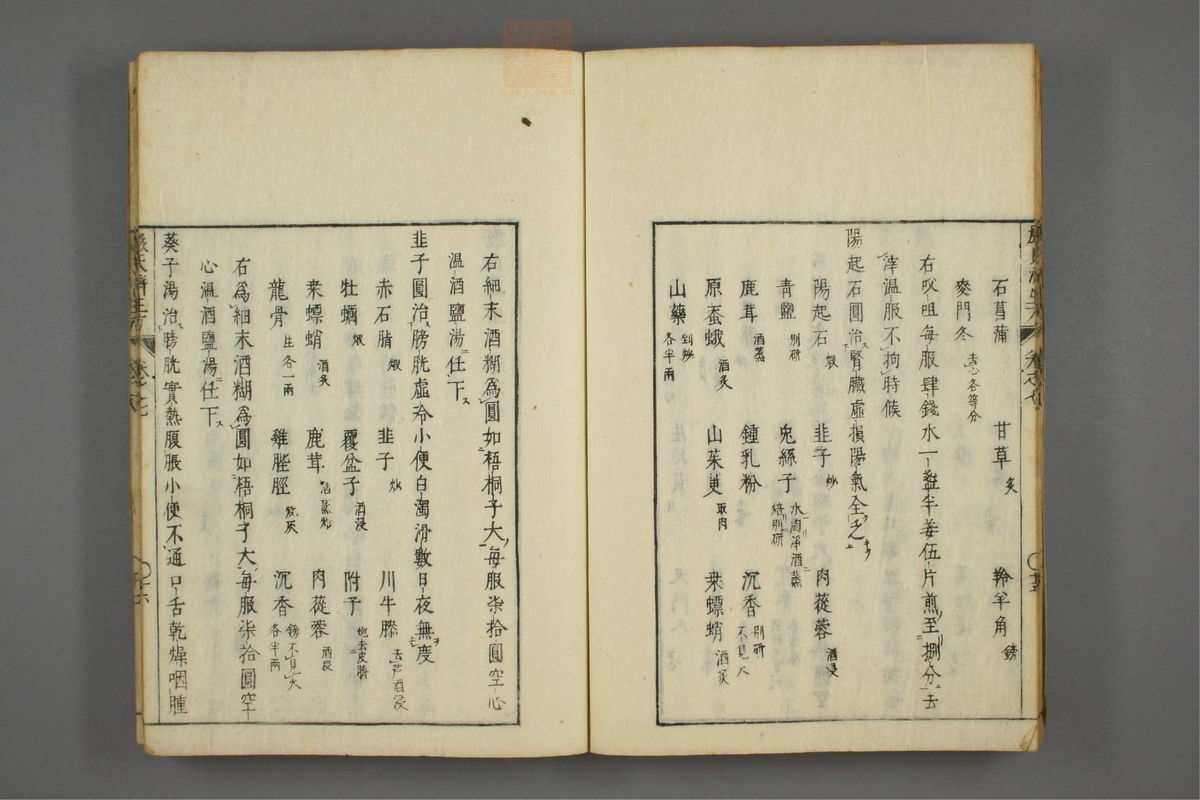 石菖蒲 甘草炙 羚羊角鎊
麥門冬去心各等分
右㕮咀每服肆錢水一盞半姜伍片煎至捌分去
滓温服不拘時候
陽起石圓治腎臟虛損陽氣全乏
陽起石煅 韭子炒 肉蓯蓉酒浸
青鹽別研 兔絲子水淘淨酒蒸焙別研
鹿茸酒蒸 鍾乳粉 沉香別研不見火
原蚕蛾酒炙 山茱萸取肉 桑螵蛸酒炙
山藥剉炒各半兩
右細末酒糊爲圓如梧桐子大每服柒拾圓空心
温酒鹽湯任下
韭子圓治膀胱虛冷小便白濁滑數日夜無度
赤石脂煅 韭子炒 川牛膝去芦酒浸
牡蠣煅 覆盆子酒浸 附子炮去皮臍
桒螵蛸酒炙 鹿茸酒蒸焙 肉蓯蓉酒浸
龍骨生各一兩 雞䏶胵燒灰 沉香鎊不見火各半兩
右爲細末酒糊爲圓如梧桐子大每服柒拾圓空
心温酒鹽湯任下
葵子湯治膀胱實熱腹脹小便不通口舌乾燥咽腫
嚴氏濟生方 卷之七